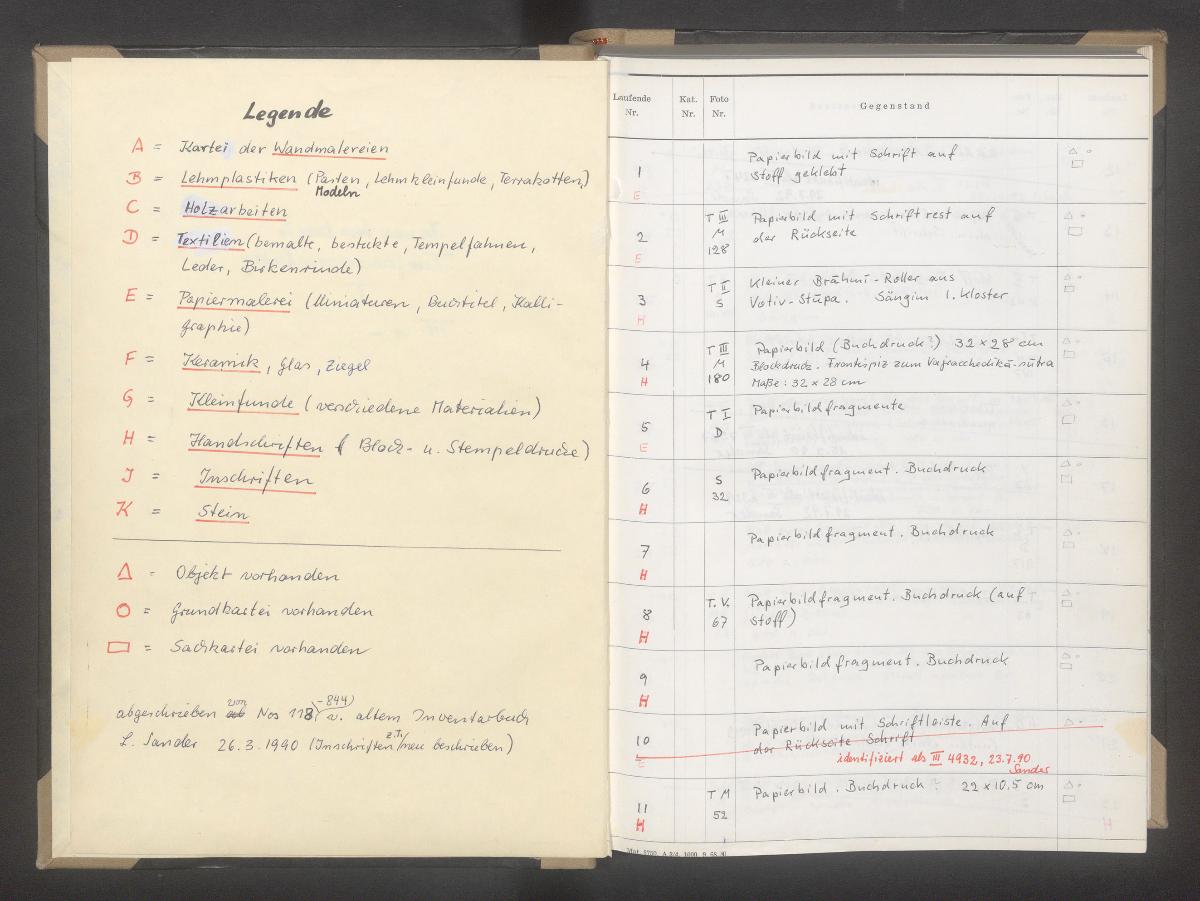 Legende
A = Kartei der Wandmalereien
B = Lehmplastiken (Pasten, Lehmkleinfunde, Terrakotten,)
Modeln
C = Holzarbeiten
D = Textilien (bemalte, bestickte, Tempelfahnen,
Leder, Birkenrinde)
E = Papiermalerei (Miniaturen, Buchtitel, Kalli-
graphie)
F = Keramik, Glas, Ziegel
G = Kleinfunde (verschiedene Materialien)
H = Handschriften (Block- u. Stempeldrucke)
J = Inschriften
K = Stein
Δ = Objekt vorhanden
O = Grundkartei vorhanden
▭ = Sachkartei vorhanden
abgeschrieben von Nos 118 (-844) a. altem Inventarbuch
L. Sander 26.3.1990 (Inschriften z.T. neu beschrieben)
Laufende Nr. Kat. Nr. Foto Nr. Gegenstand
1 E Papierbild mit Schrift auf
Stoff geklebt
2 E T III M 128 Papierbild mit Schriftrest auf
der Rückseite
3 H T II S Kleiner Brāhmī-Roller aus
Votiv-Stūpa. Sängim 1. Kloster
4 H T III M 180 Papierbild (Buchdruck?) 32 x 28 cm
Blockdruck. Frontispiz zum Vajracchedikā-sūtra
Maße: 32 x 28 cm
5 E T I D Papierbildfragmente
6 H S 32 Papierbildfragment. Buchdruck
7 H Papierbildfragment. Buchdruck
8 H T.V. 67 Papierbildfragment. Buchdruck (auf
Stoff)
9 H Papierbildfragment. Buchdruck
10 E Papierbild mit Schriftleiste. Auf
der Rückseite Schrift
identifiziert als III 4932, 23.7.90
Sander
11 H T M 52 Papierbild. Buchdruck? 22 x 10,5 cm